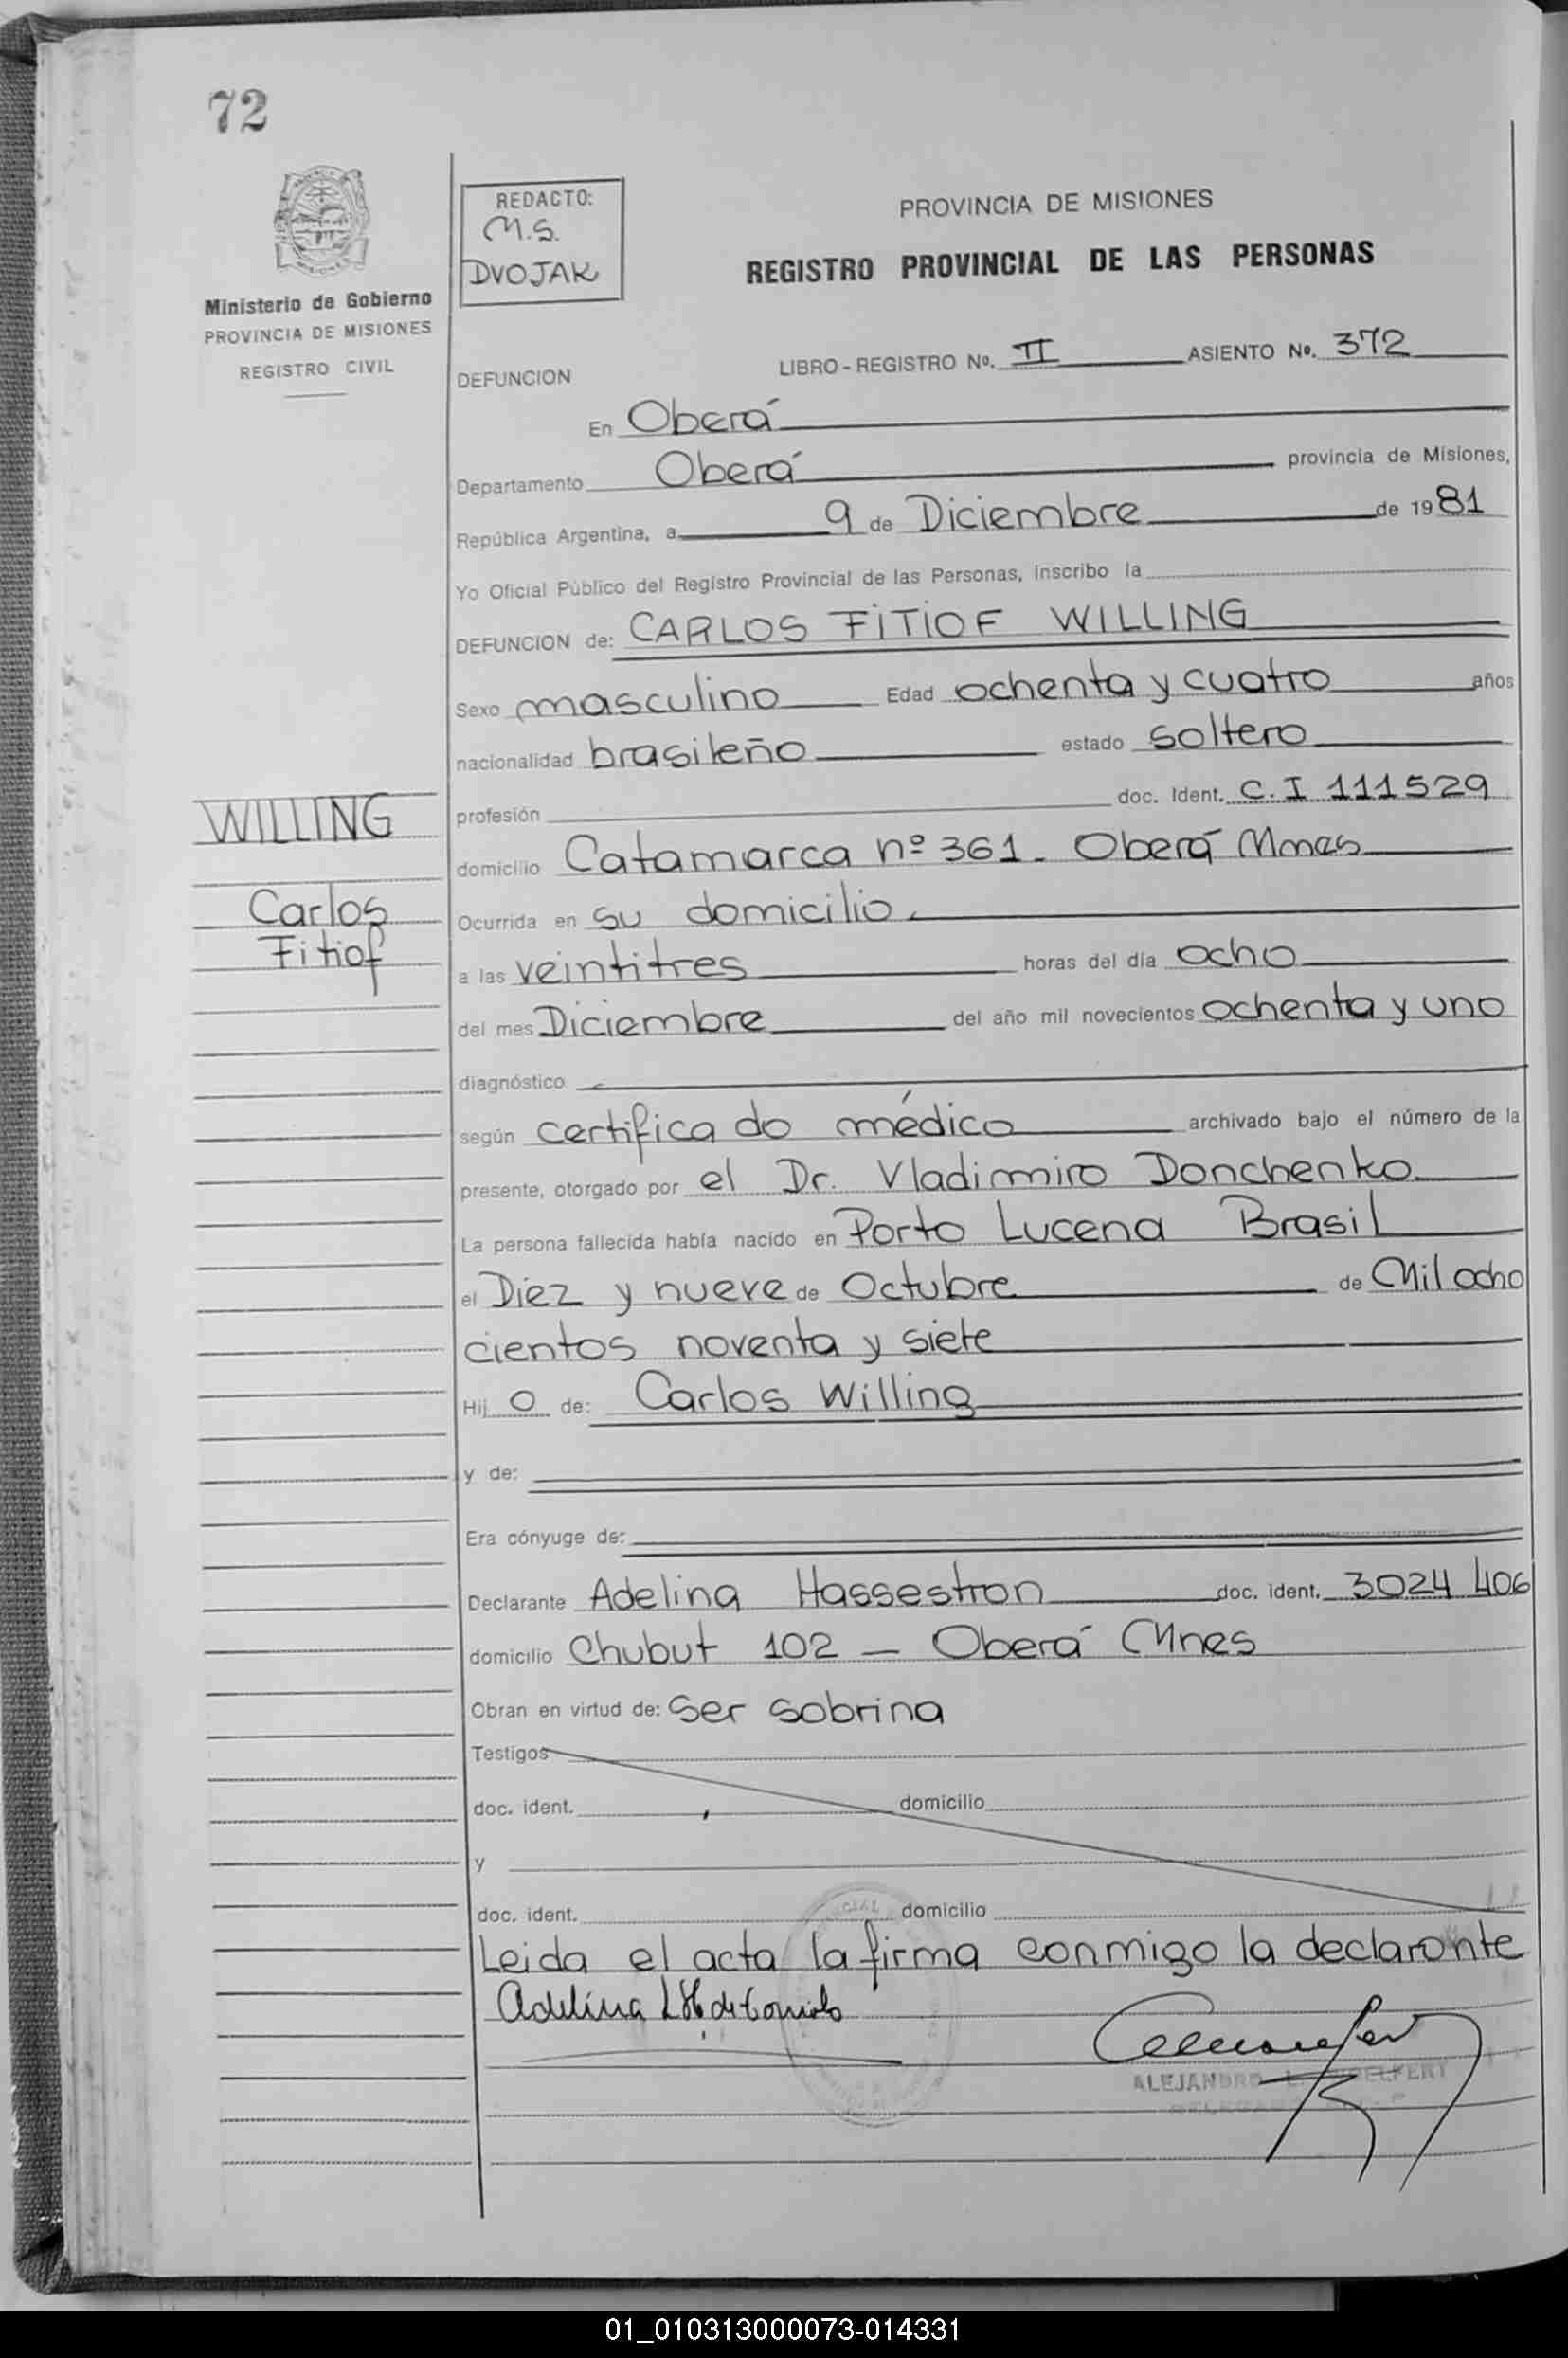 72
REDACTO:
M.S.
DVOJAK
Ministerio de Gobierno
PROVINCIA DE MISIONES
REGISTRO CIVIL
PROVINCIA DE MISIONES
REGISTRO PROVINCIAL DE LAS PERSONAS
DEFUNCION LIBRO - REGISTRO Nº. II ASIENTO Nº. 372
En Oberá
Departamento Oberá provincia de Misiones,
República Argentina, a 9 de Diciembre de 1981
Yo Oficial Público del Registro Provincial de las Personas, inscribo la
DEFUNCION de: CARLOS FITIOF WILLING
Sexo masculino Edad ochenta y cuatro años
nacionalidad brasileño estado soltero
profesión doc. Ident. C.I 111529
WILLING
Carlos
Fitiof
domicilio Catamarca nº 361. Oberá Mnes
Ocurrida en su domicilio.
a las veintitres horas del día ocho
del mes Diciembre del año mil novecientos ochenta y uno
diagnóstico
según certificado médico archivado bajo el número de la
presente, otorgado por el Dr. Vladimiro Donchenko
La persona fallecida había nacido en Porto Lucena Brasil
el Diez y nueve de Octubre de Mil ocho
cientos noventa y siete
Hij o de: Carlos Willing
y de:
Era cónyuge de:
Declarante Adelina Hassestron doc. ident. 3024406
domicilio Chubut 102 — Oberá Mnes
Obran en virtud de: Ser sobrina
Testigos
doc. ident. domicilio
y
doc. ident. domicilio
Leida el acta la firma conmigo la declarante
Adelina
ALEJANDRO
01_010313000073-014331